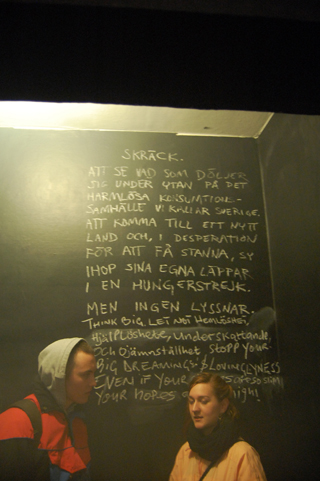 SKRÄCK.
ATT SE VAD SOM DÖLJER
SIG UNDER YTAN PÅ DET
HARMLÖSA KONSUMTIONS-
SAMHÄLLE VI KALLAR SVERIGE.
ATT KOMMA TILL ETT NYTT
LAND OCH, I DESPERATION
FÖR ATT FÅ STANNA, SY
IHOP SINA EGNA LÄPPAR
I EN HUNGERSTREJK.
MEN INGEN LYSSNAR.
THINK BIG, LET NOT Hemlöshet,
Hjälplöshet, Underskattande
och Ojämnställhet STOPP YOUR
BIG DREAMING & LOVINGLYNESS
EVEN IF YOUR
YOUR HOPES high!